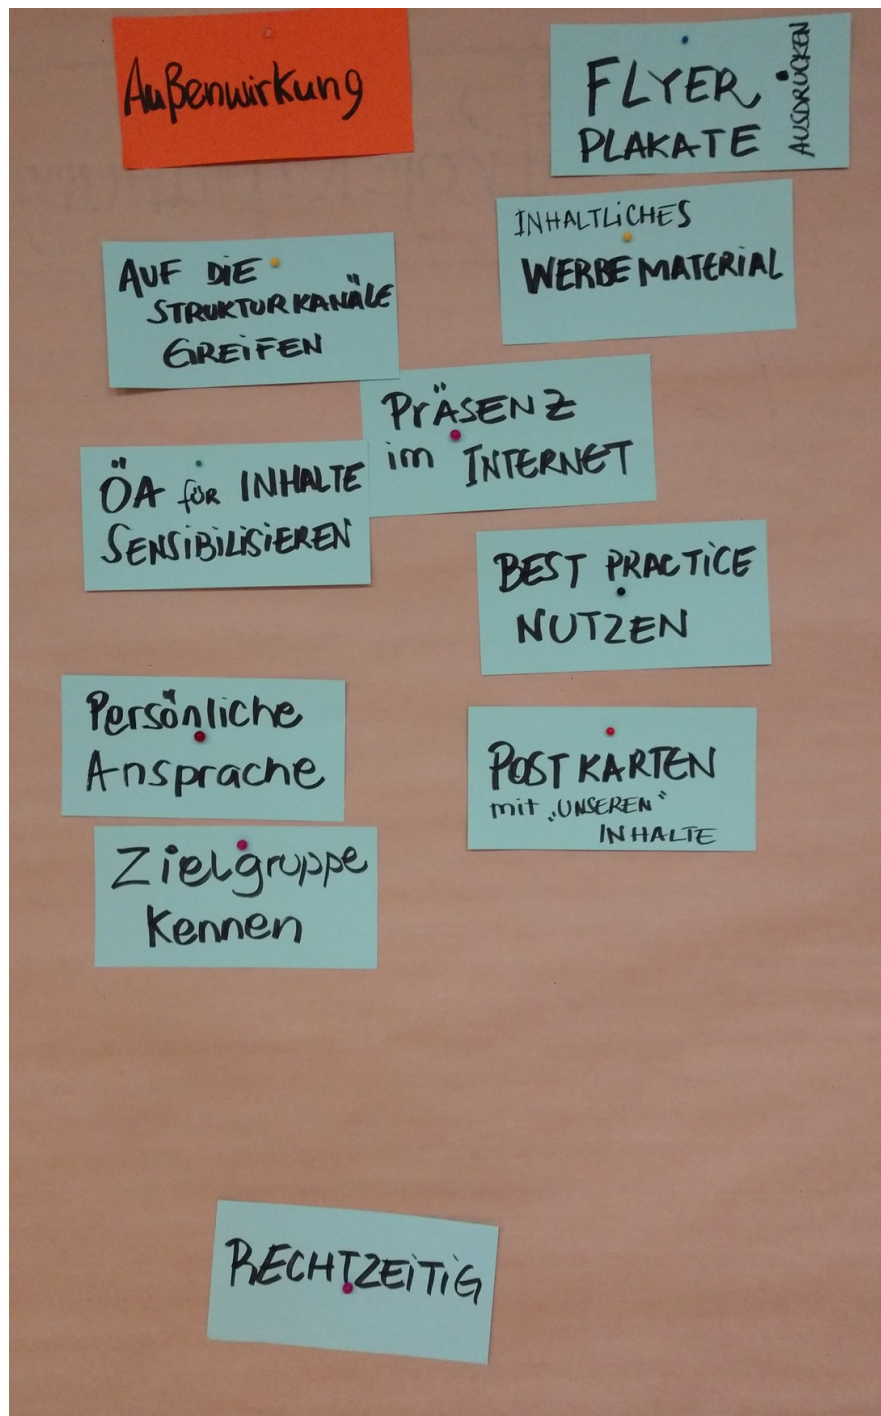 Außenwirkung
FLYER
PLAKATE
AUSDRUCKEN
INHALTLICHES
WERBEMATERIAL
AUF DIE
STRUKTURKANÄLE
GREIFEN
PräSENZ
im INTERNET
ÖA für INHALTE
SENSIBILISIEREN
BEST PRACTICE
NUTZEN
Persönliche
Ansprache
POSTKARTEN
mit „UNSEREN“
INHALTE
Zielgruppe
Kennen
RECHTZEITIG